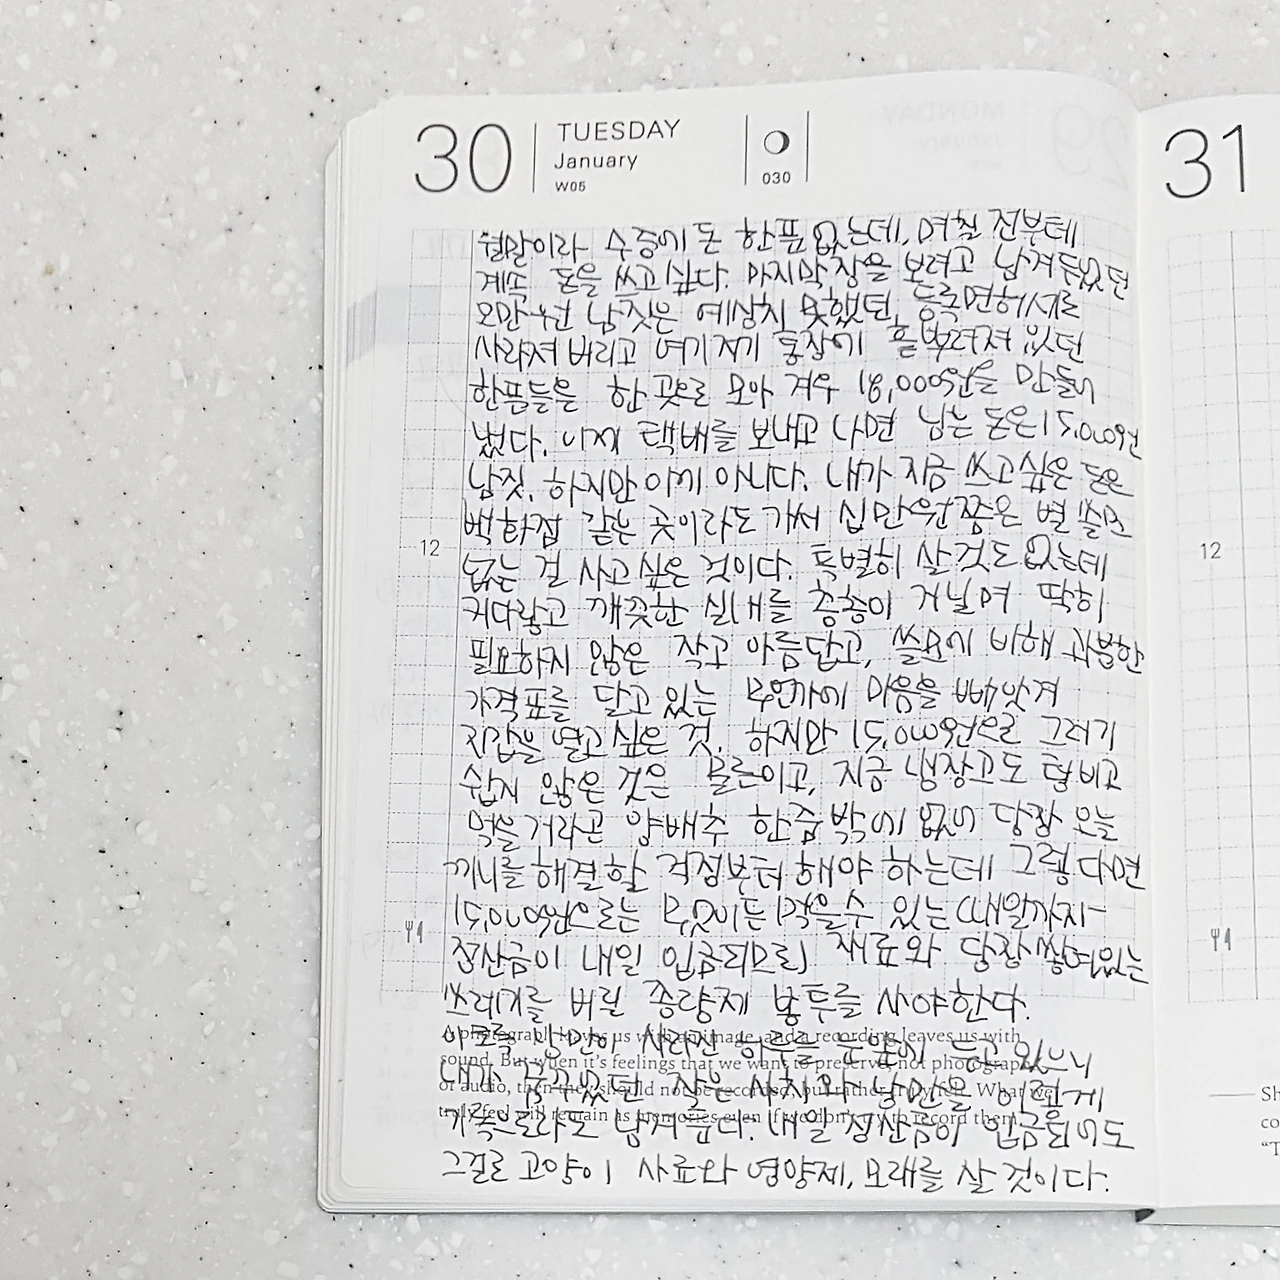 30
TUESDAY
January
W05
030
31
월말이라 수중에 돈 한푼 없는데, 며칠 전부터
계속 돈을 쓰고 싶다. 마지막 장을 보려고 남겨두었던
오만 원 남짓은 예상치 못했던, 등록면허세로
사라져 버리고 여기저기 통장에 흩뿌려져 있던
한푼들을 한 곳으로 모아 겨우 18,000원을 만들어
냈다. 이제 택배를 보내고 나면 남는 돈은 15,000원
남짓. 하지만 이게 아니다. 내가 지금 쓰고 싶은 돈은
백화점 같은 곳이라도 가서 십만원쯤은 별 쓸모
없는 걸 사고 싶은 것이다. 특별히 살 것도 없는데
커다랗고 깨끗한 실내를 층층이 거닐며 딱히
필요하지 않은 작고 아름답고, 쓸모에 비해 과분한
가격표를 달고 있는 무언가에 마음을 빼앗겨
지갑을 열고 싶은 것. 하지만 15,000원으로 그러기
쉽지 않은 것은 물론이고, 지금 냉장고도 텅 비고
12
12
먹을 거라곤 양배추 한줌 밖에 없어 당장 오늘
끼니를 해결할 걱정부터 해야 하는데 그렇다면
15,000원으로는 무엇이든 먹을 수 있는 (내일까지-
정산금이 내일 입금되므로) 재료와 당장 쌓여있는
쓰레기를 버릴 종량제 봉투를 사야한다.
A photograph leaves us with an image, and a recording leaves us with
sound. But when it's feelings that we want to preserve, not photograph
or audio, then they should not be recorded, but rather What we
truly feel will remain as memories even if we don't try to record them.
사라진 하루를 있으니
내가 꿈꾸었던 작은 사치와 낭만을 이렇게
기록으로라도 남겨둔다. 내일 정산금이 입금되어도
그걸로 고양이 사료와 영양제, 모래를 살 것이다.
Sh
co
“T